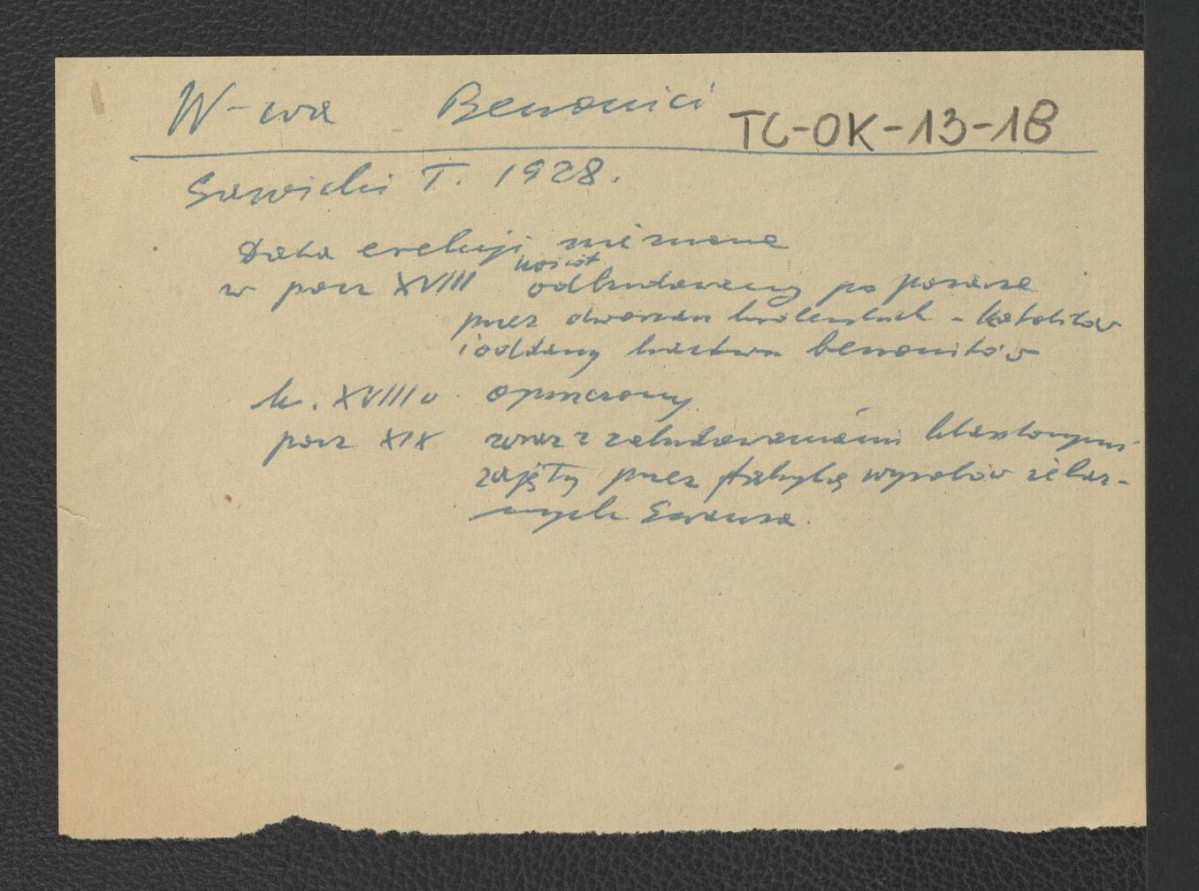 W-wa Benonici
TC-OK-13-1B
Sawicki T. 1928.
Data erekcji nieznana
kościół
w pocz XVIII odbudowany po pożarze
przez dworzan królewskich - katolików
i oddany bractwu benonitów
k. XVIII w. opuszczony
pocz XIX wraz z zabudowaniami klasztornymi
zajęty przez fabrykę wyrobów żelaz-
nych Ewansa.